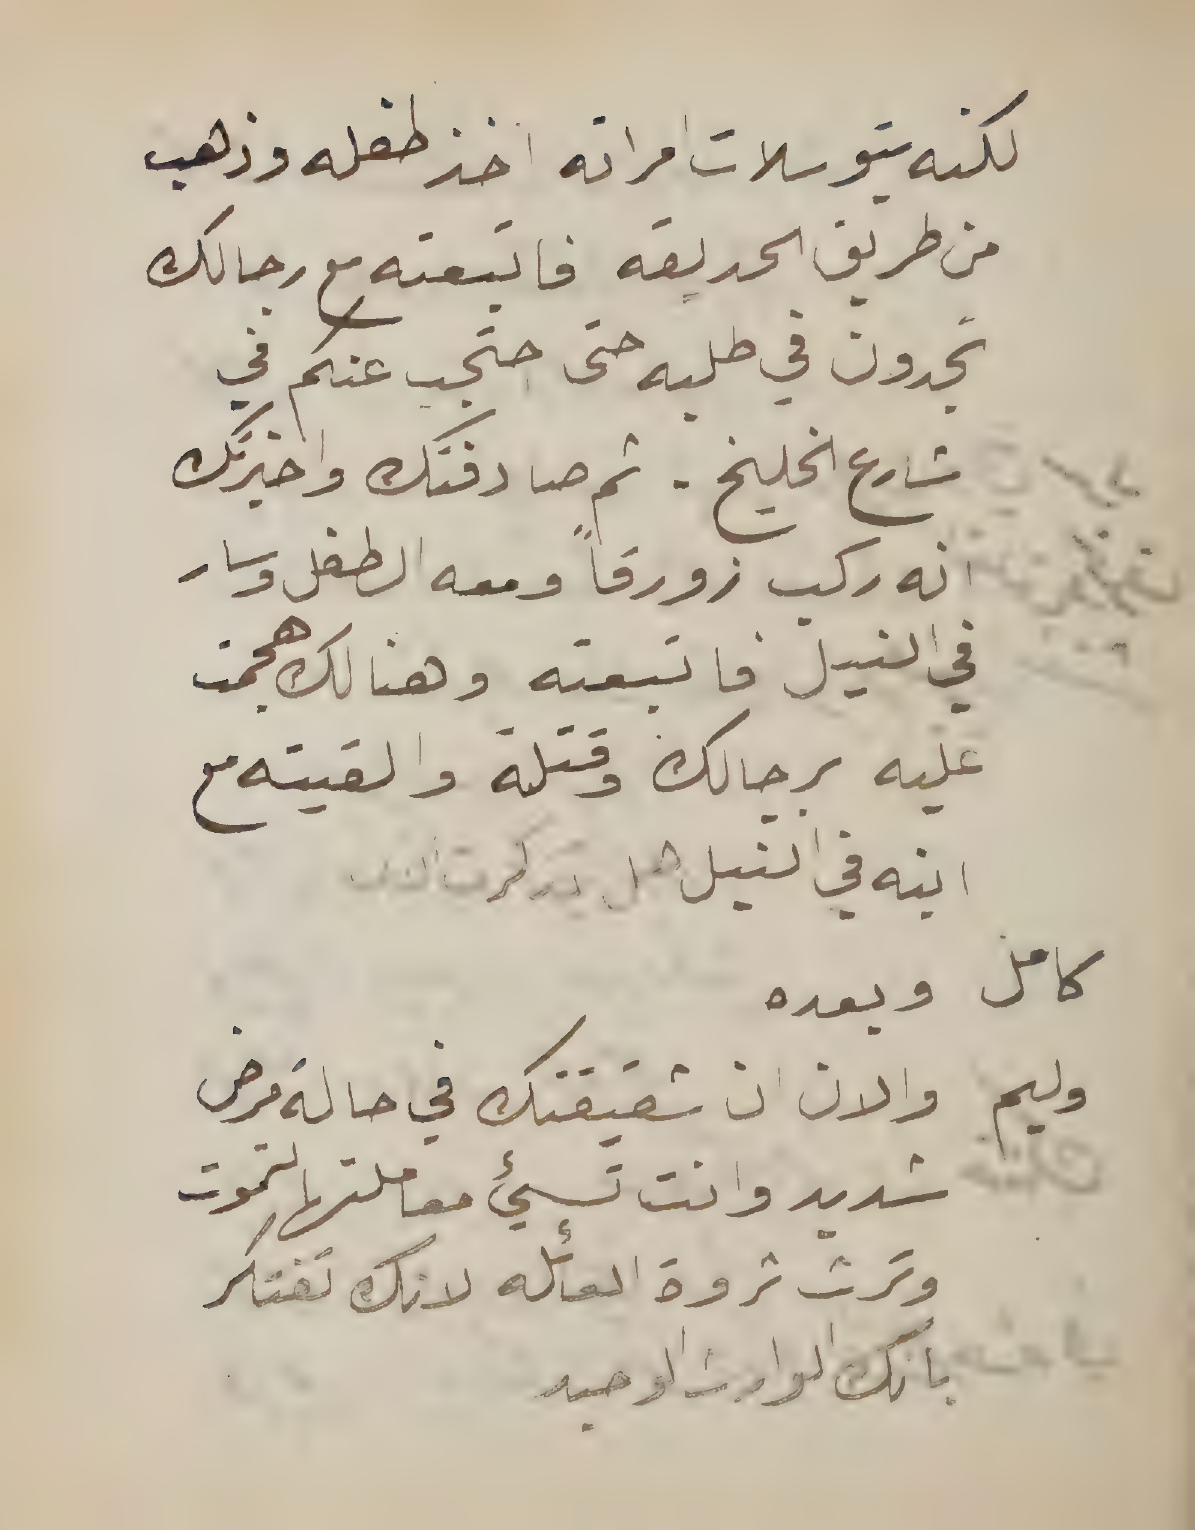 لكنه بتوسلات امراته اخذ طفله وذهب
من طريق الحديقه فاتبعته مع رجالك
تجدون في طلبه حتى احتجب عنكم في
شارع الخليج . ثم صادفتك واخبرتك
انه ركب زورقاً ومعه الطفل وسار
في النيل فاتبعته وهنالك هجمت
عليه برجالك وقتلته والقيته مع
ابنه في النيل هل تذكرت الان
كامل وبعده
وليم والان ان شقيقتك في حالة مرض
شديد وانت تسيئ معاملتها لتموت
وترث ثروة العائله لانك تفتكر
بانك الوارث الوحيد